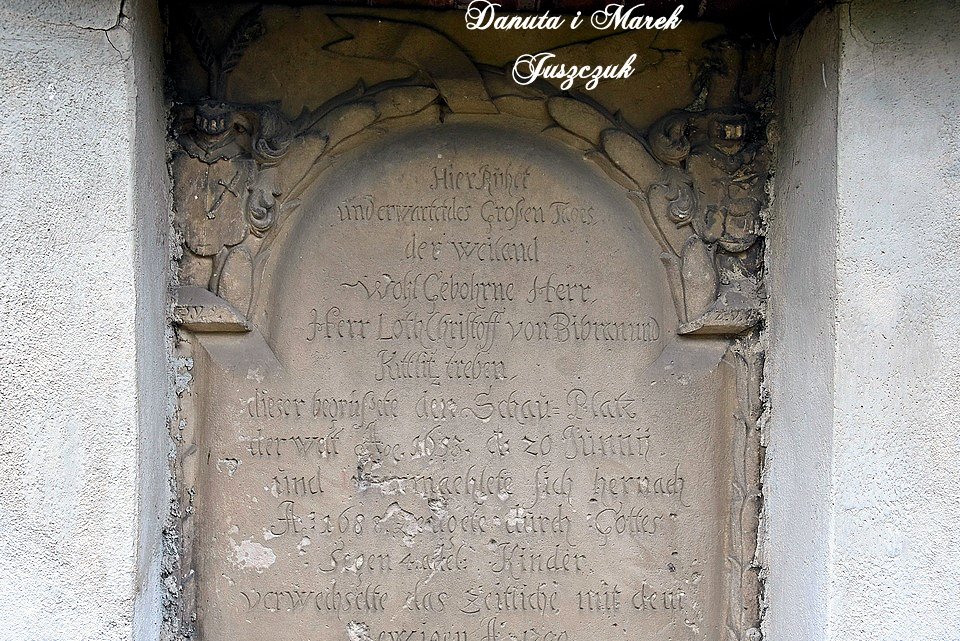 Danuta i Marek
Juszczuk
Hier Ruhet
und erwartet des Großen Tages
der weiland
WohlGebohrne Herr,
Herr Loth Christoff von Bibran und
Kittlitz treben,
dieser begrüßete den Schau-Platz
der welt Ao. 1653. d. 20 Junnii
und Vermaehlete sich hernach
A: 1688 Zeugete durch Gottes
Segen 4 Kinder.
verwechselte das Zeitliche mit dem